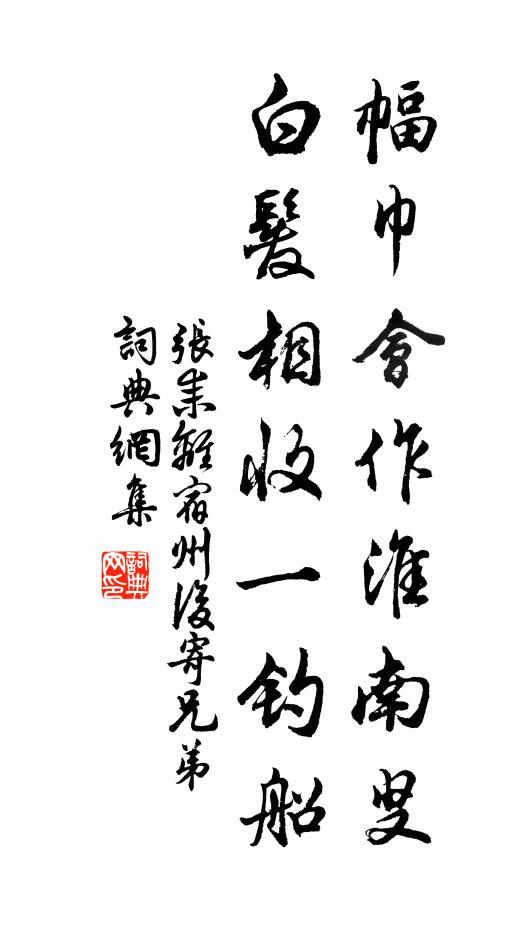 幅巾會作淮南叟
白髮相收一釣船
張耒離宿州後寄兄弟
詞典網集
詞典网印